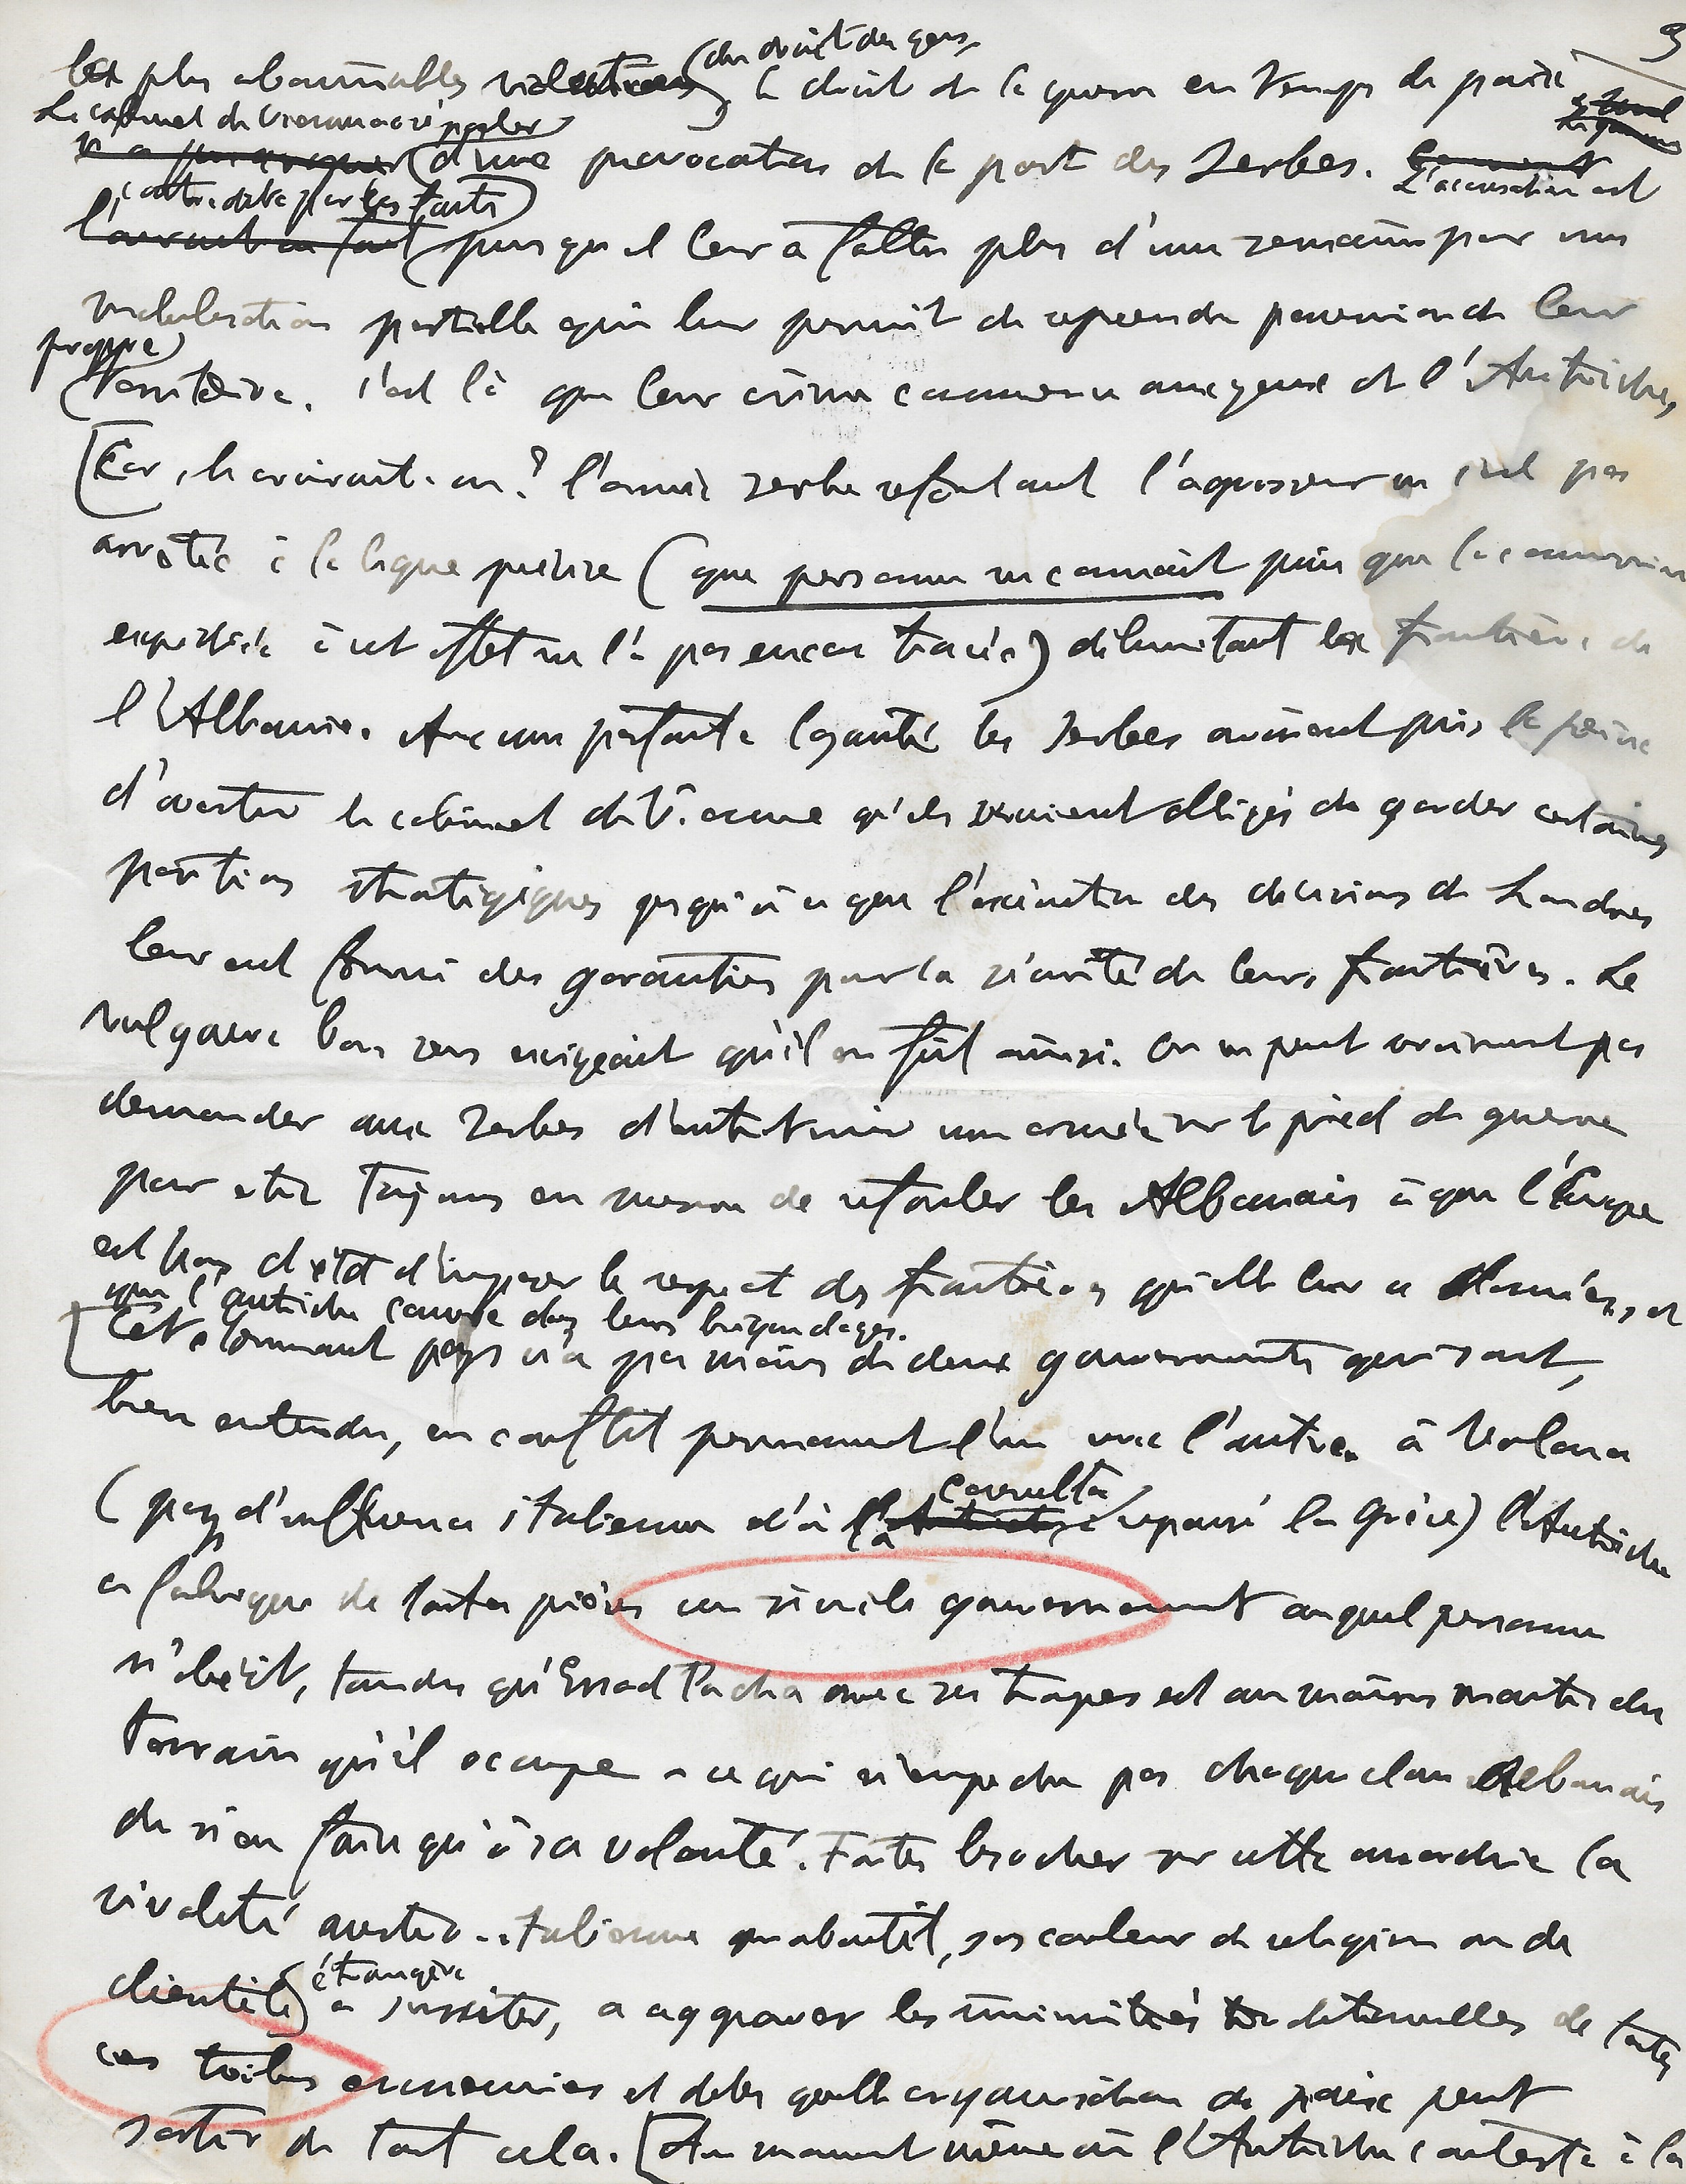 3
les plus abominables violations du droit des gens, le droit de la guerre en temps de paix
Le cabinet de Vienne a osé parler
d'une provocation de la part des Serbes. L'accusation est
contredite par les faits
puisqu'il leur a fallu plus d'une semaine pour une
mobilisation partielle qui leur permit de reprendre possession de leur
propre
territoire. C'est là que leur crime commence aux yeux de l'Autriche,
Car, le croirait-on? l'armée serbe refoulant l'agresseur ne s'est pas
arrêtée à la ligne précise (que personne ne connait puisque la commission
expédiée à cet effet ne l'a pas encore tracée) délimitant les frontières de
l'Albanie. Avec une parfaite loyauté les Serbes avaient pris la peine
d'avertir le cabinet de Vienne qu'ils seraient obligés de garder certaines
positions stratégiques jusqu'à ce que l'exécution des décisions de Londres
leur eut fourni des garanties pour la sécurité de leurs frontières. Le
vulgaire bon sens exigeait qu'il en fût ainsi. On ne peut vraiment pas
demander aux Serbes d'entretenir une armée sur le pied de guerre
pour être toujours en mesure de refouler les Albanais à qui l'Europe
est hors d'état d'imposer le respect des frontières qu'elle leur a données, et
que l'Autriche couvre dans leurs brigandages.
Cet étonnant pays n'a pas moins de deux gouvernements qui sont,
bien entendu, en conflit permanent l'un avec l'autre. à Valona
(pays d'influence italienne d'où la Consulta a repoussé la Grèce) l'Autriche
a fabriqué de toutes pièces un simili gouvernement auquel personne
n'obéit, tandis qu'Essad Pacha avec ses troupes est au moins maitre du
terrain qu'il occupe - ce qui n'empêche pas chaque clan Albanais
de n'en faire qu'à sa volonté. Faites brocher sur cette anarchie la
rivalité austro-italienne qui aboutit, sous couleur de religion ou de
clientèle étrangère à susciter, a aggraver les inimitiés traditionnelles de toutes
ces tribus ennemies et dites quelle organisation de paix peut
sortir de tout cela. [Au moment même où l'Autriche conteste à la